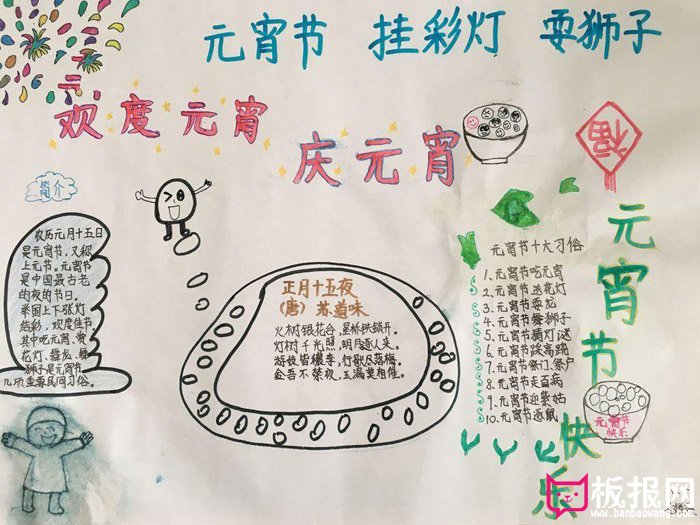 元宵节 挂彩灯 耍狮子
欢度元宵
庆元宵
福
简介
农历元月十五日
是元宵节，又称
上元节。元宵节
是中国最古老
的夜的节日。
举国上下张灯
结彩，欢度佳节
其中吃元宵，赏
花灯、舞龙、舞
狮子是元宵节
几项重要民间习俗。
正月十五夜
（唐）苏道味
火树银花合，星桥铁锁开。
灯树千光照，明月逐人来。
游妓皆穠李，行歌尽落梅。
金吾不禁夜，玉漏莫相催。
元宵节十大习俗
1.元宵节吃元宵
2.元宵节送花灯
3.元宵节耍龙
4.元宵节舞狮子
5.元宵节猜灯谜
6.元宵节踩高跷
7.元宵节祭门、祭户
8.元宵节走百病
9.元宵节迎紫姑
10.元宵节逐鼠
元宵节快乐
元宵节
快乐
板报网
www.banbaowang.com